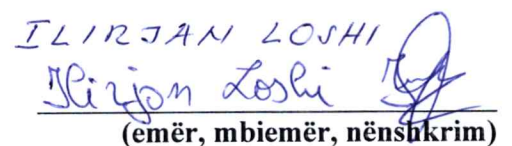 ILIRJAN LOSHI
Ilirjan Loshi
(emër, mbiemër, nënshkrim)